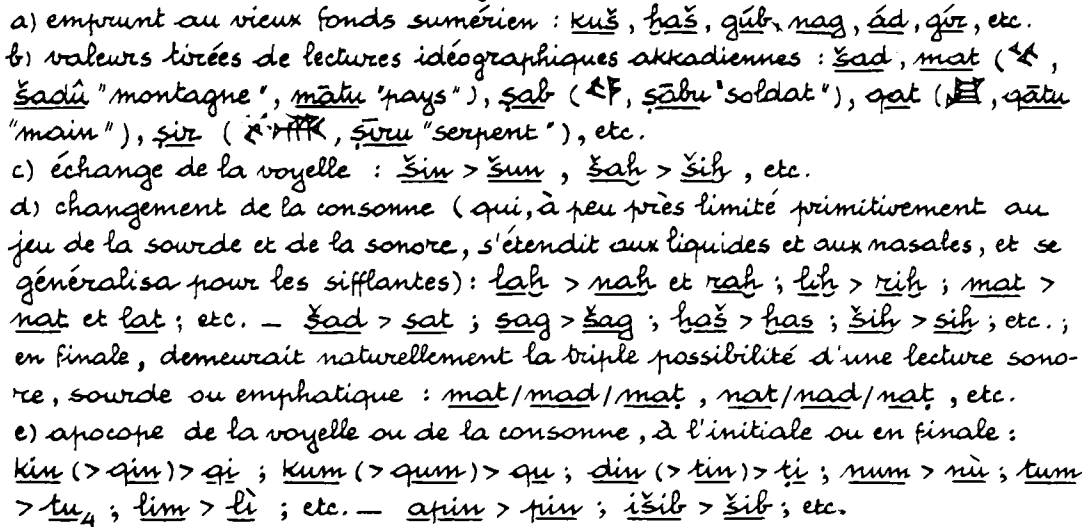 a) emprunt au vieux fonds sumérien : kuš, ḫaš, gúb, nag, ád, gír, etc.
b) valeurs tirées de lectures idéographiques akkadiennes : šad, mat (𒆳,
šadû "montagne", mātu "pays"), ṣab (𒂟, ṣābu "soldat"), qat (𒋗, qātu
"main"), ṣir (𒈲, ṣīru "serpent"), etc.
c) échange de la voyelle : šin > šun, šaḫ > šiḫ, etc.
d) changement de la consonne (qui, à peu près limité primitivement au
jeu de la sourde et de la sonore, s'étendit aux liquides et aux nasales, et se
généralisa pour les sifflantes) : laḫ > naḫ et raḫ ; liḫ > riḫ ; mat >
nat et lat ; etc. — šad > sat ; sag > šag ; ḫaš > ḫas ; šiḫ > siḫ ; etc. ;
en finale, demeurait naturellement la triple possibilité d'une lecture sono-
re, sourde ou emphatique : mat/mad/maṭ, nat/nad/naṭ, etc.
e) apocope de la voyelle ou de la consonne, à l'initiale ou en finale :
kin (> qin) > qi ; kum (> qum) > qu ; din (> tin) > ṭi ; num > nù ; tum
> tu₄ ; lim > lì ; etc. — apin > pin ; išib > šib ; etc.